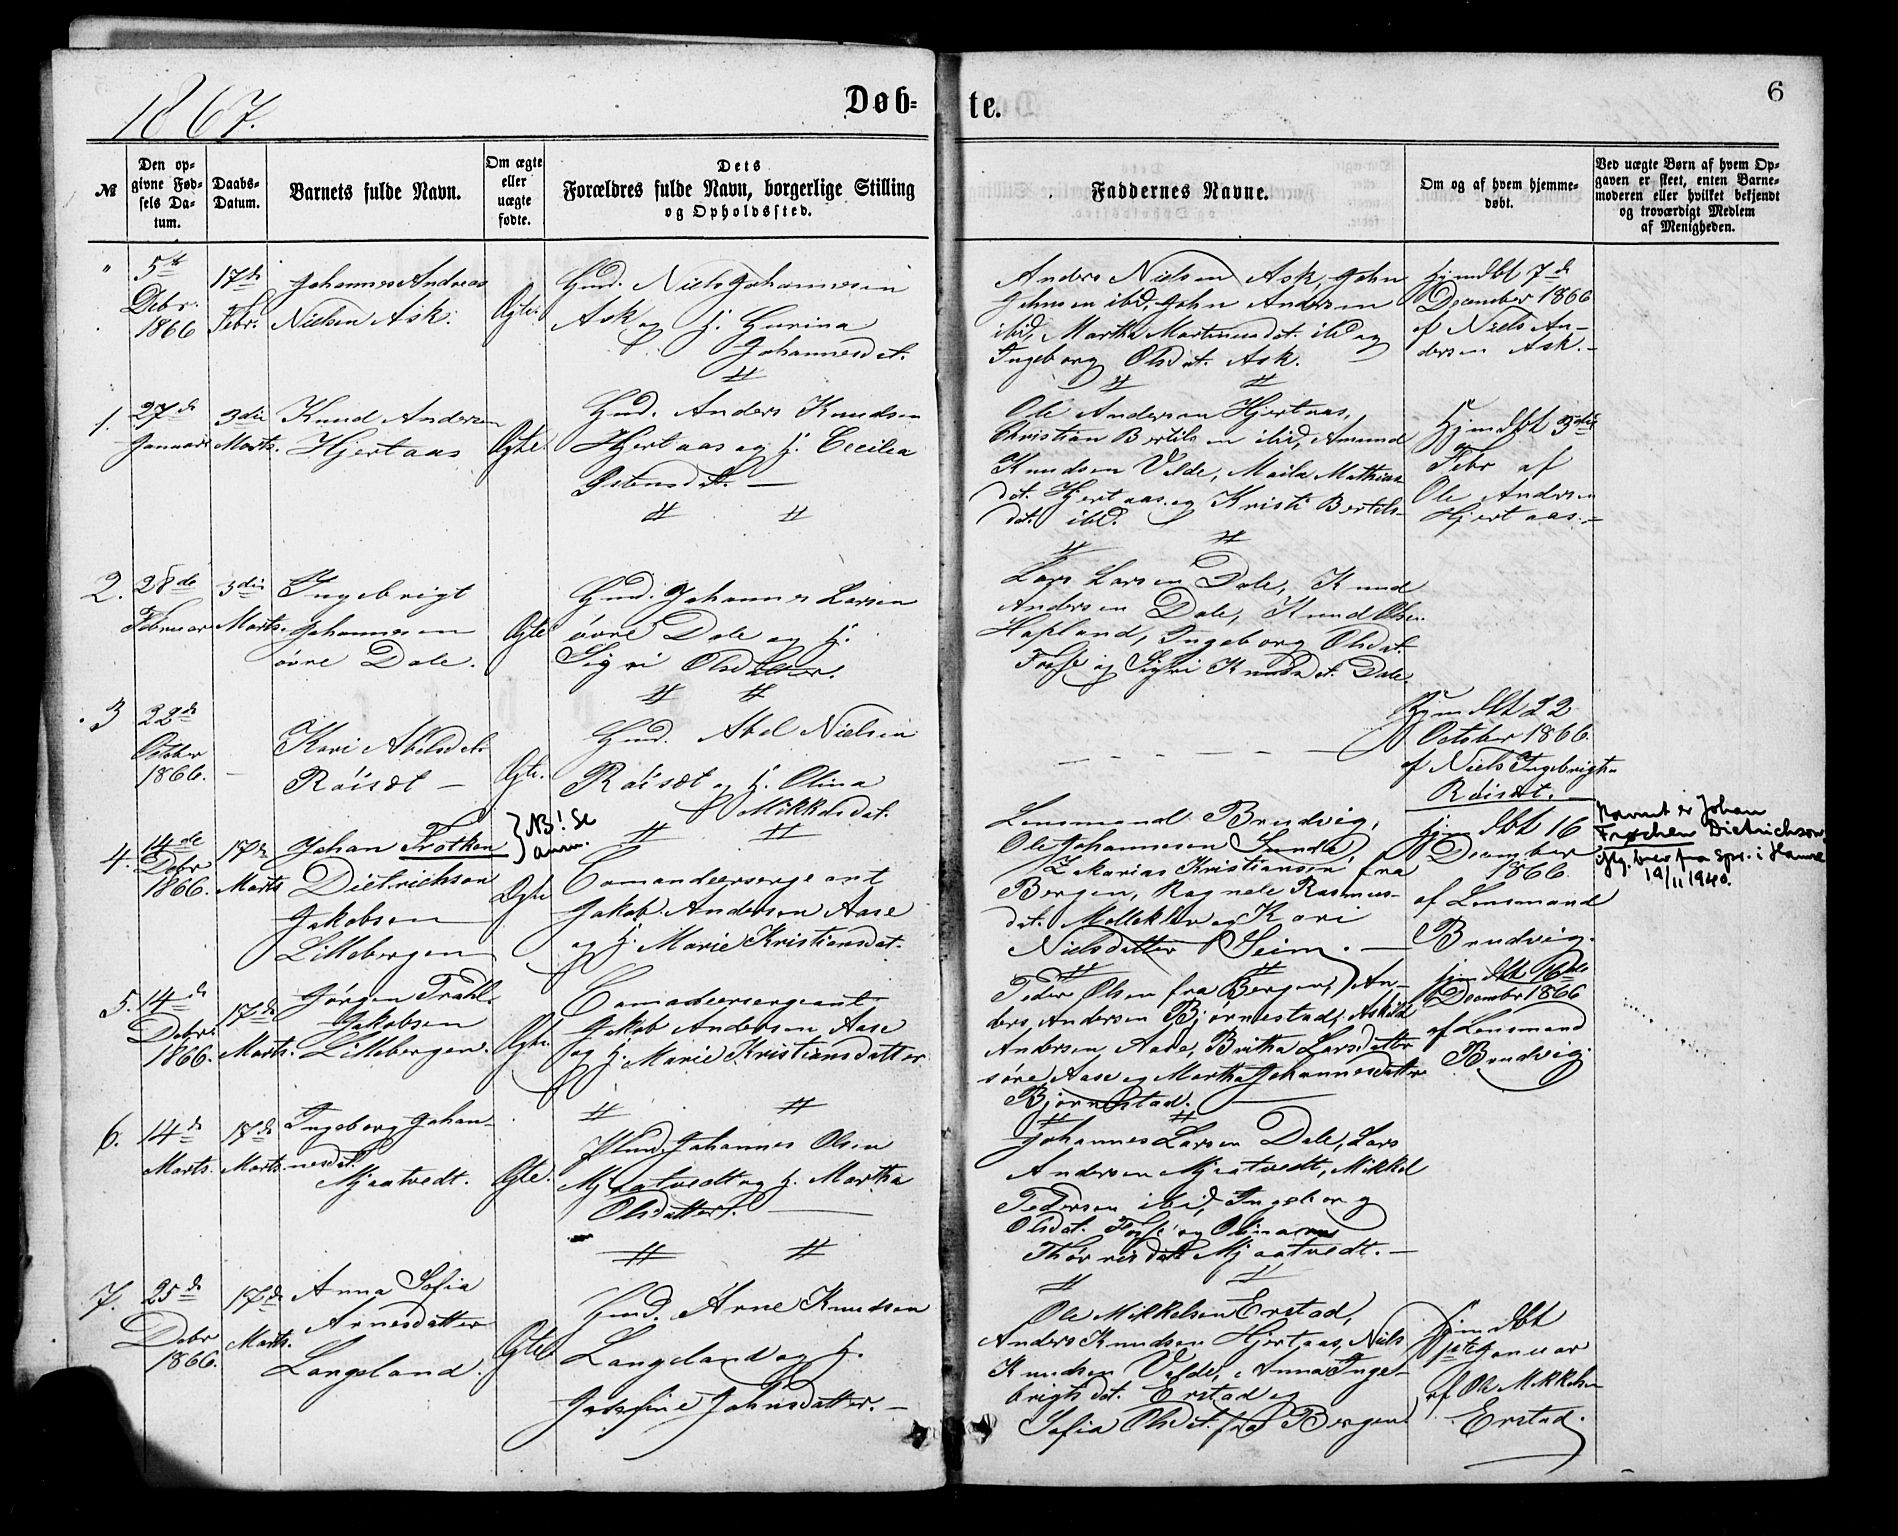 1867.
Døb-
te.
6
№
Den op-
givne Fød-
sels Da-
tum.
Daabs-
Datum.
Barnets fulde Navn.
Om ægte
eller
uægte
fødte.
Dets
Forældres fulde Navn, borgerlige Stilling
og Opholdssted.
Faddernes Navne.
Om og af hvem hjemme-
døbt.
Ved uægte Børn af hvem Op-
gaven er skeet, enten Barne-
moderen eller hvilket bekjendt
og troværdigt Medlem
af Menigheden.
"
5te
Debr.
1866
17de
Febr.
Johannes Andreas
Nielsen Ask.
Ægte.
Gmd. Niels Johannesen
Ask og h. Gurina
Johannesdat.
Anders Nielsen Ask, John
Johnsen ibid, John Andersen
ibid, Martha Martinusdat. ibd og
Ingeborg Olsdat. Ask.
Hjmdbt 7de
December 1866
af Niels An-
dersen Ask.
1.
27de
Januar
3die
Marts.
Knud Andersen
Hjertaas
Ægte.
Gmd. Anders Knudsen
Hjertaas og h. Cecilia
Ole Andersen Hjertaas,
Christian Bertilsen ibid, Amund
Knudsen Velde, Maila Mathias
dat. Hjertaas og Kristi Bertils-
dat. ibd.
Hjmdbt 3die
Febr af
Ole Andersen
Hjertaas.
2.
28de
Februar
3die
Marts.
Ingebrigt
Johannesen
øvre Dale.
Ægte
Gmd. Johannes Larsen
øvre Dale og h.
Sigri Olsdatter.
Lars Larsen Dale, Knud
Andersen Dale, Knud Olsen
Hopland, Ingeborg Olsdat.
Fosse og Sigri Knudsdt. Dale.
3
22de
October
1866.
Kari Abelsdat.
Röisæt
Ægte.
Gmd. Abel Nielsen
Röisæt og h. Olina
Mikkelsdat.
Hjmdbt 22
October 1866
af Niels Ingebrigts.
Röisæt.
4.
14de
Debr
1866.
17de
Marts
Johan Frøtken
Dietrichson
Jakobsen
Lillebergen
NB! Se
anm.
Ægte
Comandeersergeant
Jakob Andersen Aase
og h. Marie Kristiansdat.
Lensmand Brudvig,
Ole Johannesen Sundt,
Zakarias Kristiansen fra
Bergen, Ragnele Rasmus-
dat. Molleklev og Kari
Nielsdatter Seim.
Hjmdbt 16
December
1866
af Lensmand
Brudvig.
Navnet er Johan
Frøchen Dietrichson,
iflg. brev fra spr. i Hamre
19/11 1940.
5.
14de
Debr.
1866.
17de
Marts.
Jørgen Frahl.
Jakobsen
Lillebergen.
Ægte.
Comadeersergeant
Jakob Andersen Aase
og h. Marie Kristiansdatter
Peder Olsen fra Bergen, An-
ders Andersen Bjørnestad, Askild
Andersen Aase, Britha Larsdatter
søre Aase og Martha Johannesdatter
Bjørnestad.
hjmdbt 16de
December 1866
af Lensmand
Brudvig.
6.
14de
Marts.
17de
Marts.
Ingeborg Johan-
nesdat.
Mjaatvedt.
Ægte.
Pl. Gmd. Johannes Olsen
Mjaatvedt og h. Martha
Olsdatter.
Johannes Larsen Dale, Lars
Andersen Mjaatvedt, Mikkel
Pedersen ibid, Ingeborg
Olsdat. Fosse og
Mjaatvedt.
7.
25de
Debr
1866.
17de
Marts.
Anna Sofia
Arnesdatter
Langeland.
Ægte.
Gmd. Arne Knudsen
Langeland og h.
Josefine Johnsdatter.
Ole Mikkelsen Erstad,
Anders Knudsen Hjertaas, Niels
Knudsen Velde, Anna Inge-
brigtsdat. Erstad og
Sofia Olsdat. fra Bergen
hjmdbt
1ste Januar
af Ole Mikkelsen
Erstad.